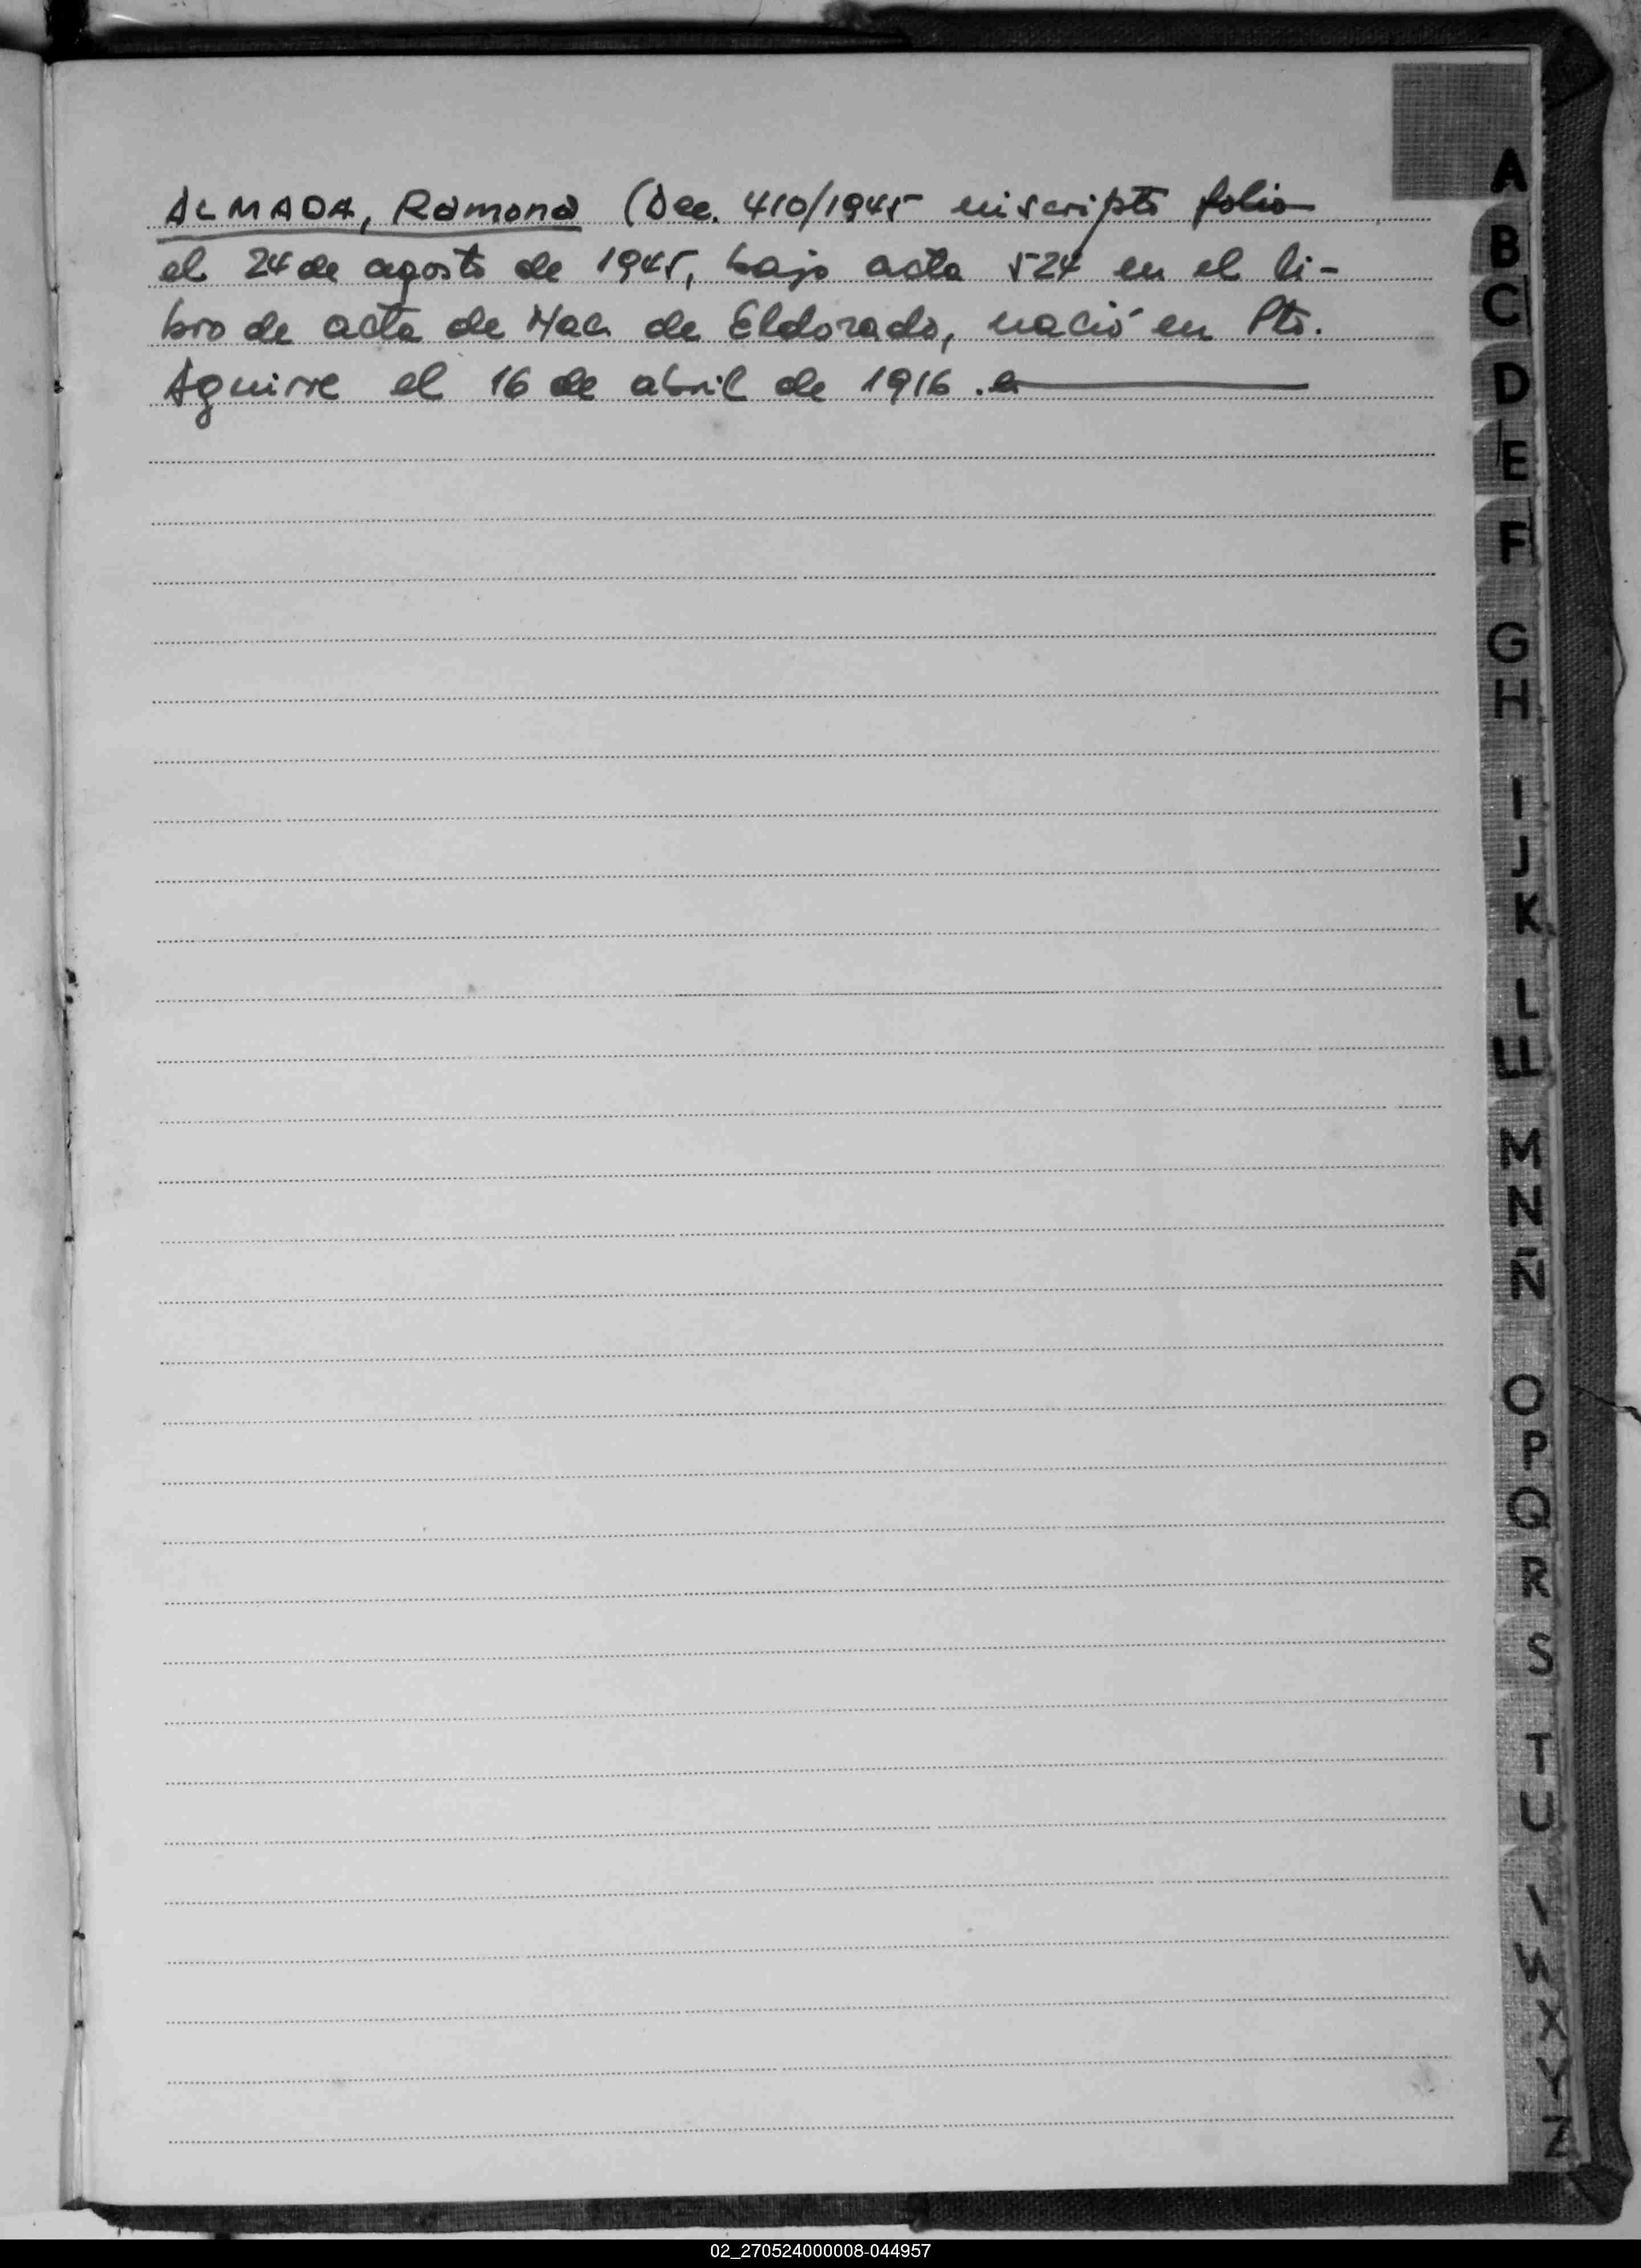 ALMADA, Ramona (Dec. 410/1945 inscripto folio
el 24 de agosto de 1945, bajo acta 524 en el li-
bro de acta de Nac. de Eldorado, nació en Pto.
Aguirre el 16 de abril de 1916.
A
B
C
D
E
F
G
H
I
J
K
L
LL
M
N
Ñ
O
P
Q
R
S
T
U
W
X
Y
Z
02_270524000008-044957